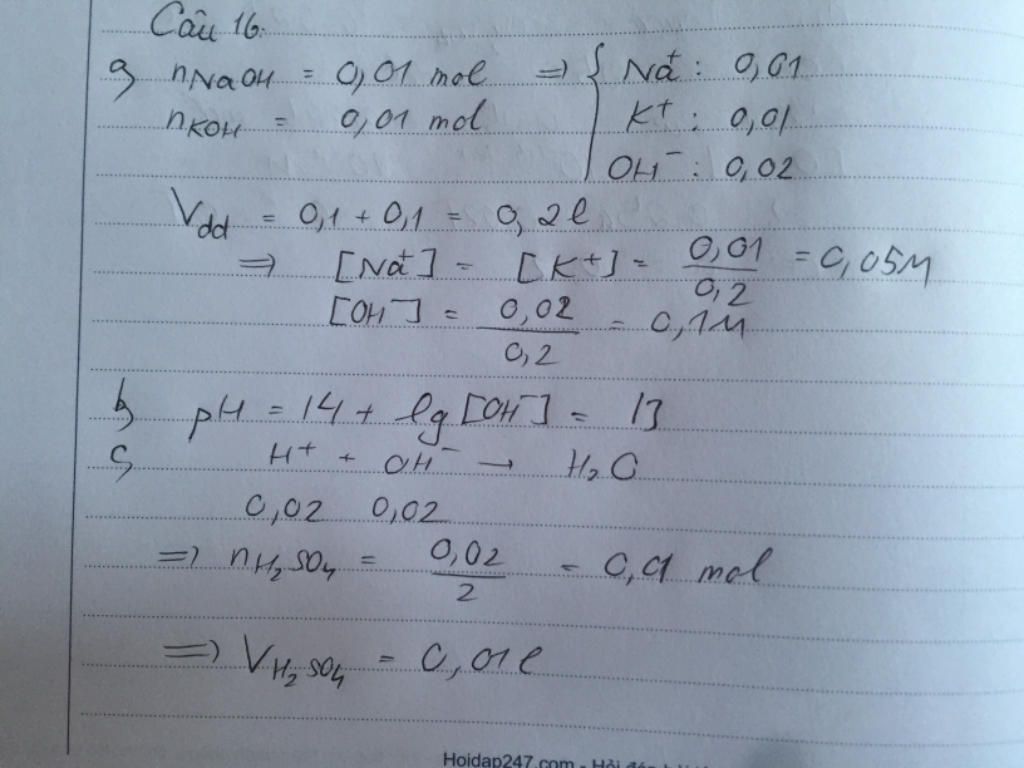 Câu 16:
a) nNaOH = 0,01 mol => { Na+ : 0,01
nKOH = 0,01 mol K+ : 0,01
OH- : 0,02
Vdd = 0,1 + 0,1 = 0,2l
=> [Na+] = [K+] = 0,01/0,2 = 0,05M
[OH-] = 0,02/0,2 = 0,1M
b) pH = 14 + lg [OH-] = 13
c) H+ + OH- → H2O
0,02 0,02
=> nH2SO4 = 0,02/2 = 0,01 mol
=> VH2SO4 = 0,01l
Hoidap247.com - Hỏi đáp